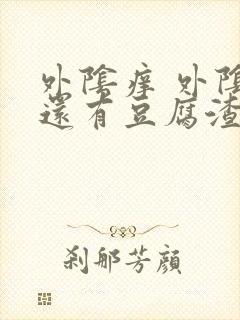 外陰痒 外陰
還有豆腐渣
刹那芳顏